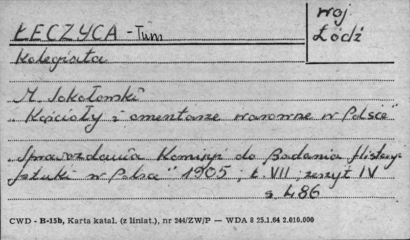 ŁĘCZYCA - Tum
woj
Łódź
Kolegiata
M. Sokołowski
„Kościoły i cmentarze warowne w Polsce"
„Sprawozdania Komisyi do Badania History
Sztuki w Polsce" 1905; t. VII; zeszyt IV
s. 486
CWD - B-15b, Karta katal. (z liniat.), nr 244/ZW/P — WDA 8 25.1.64 2.010.000